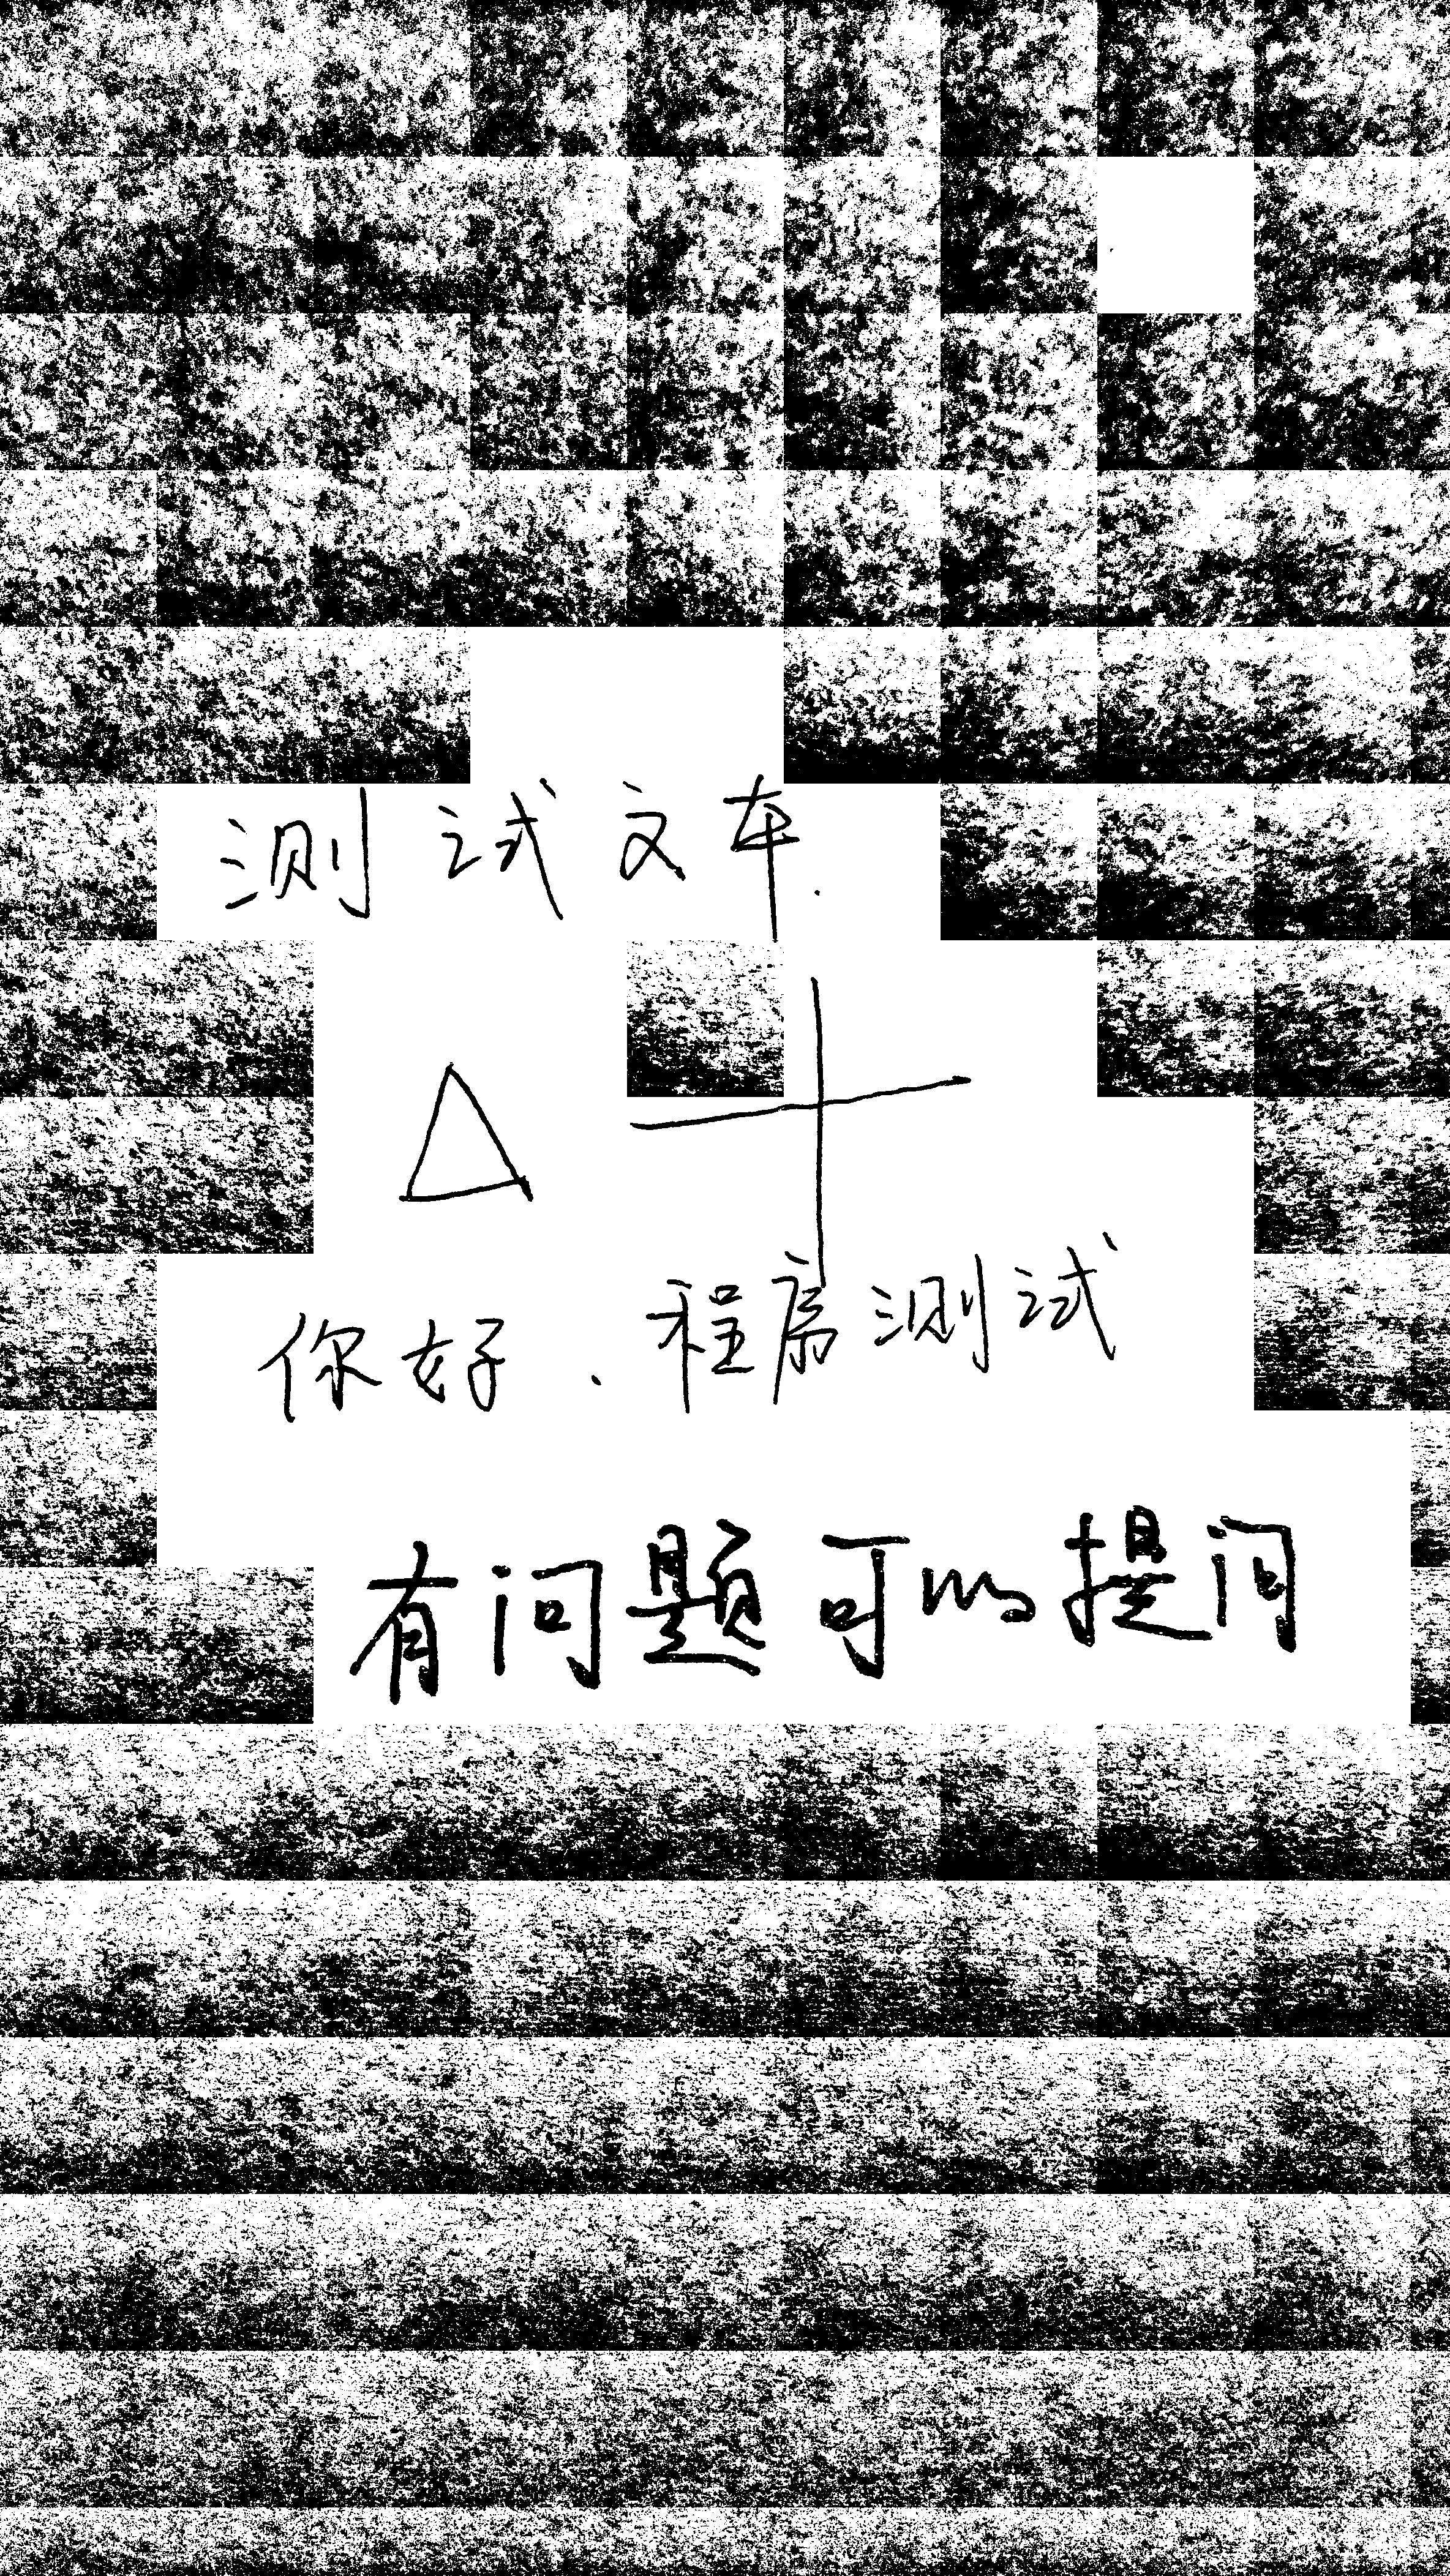 测试文本.
你好.程序测试
有问题可以提问